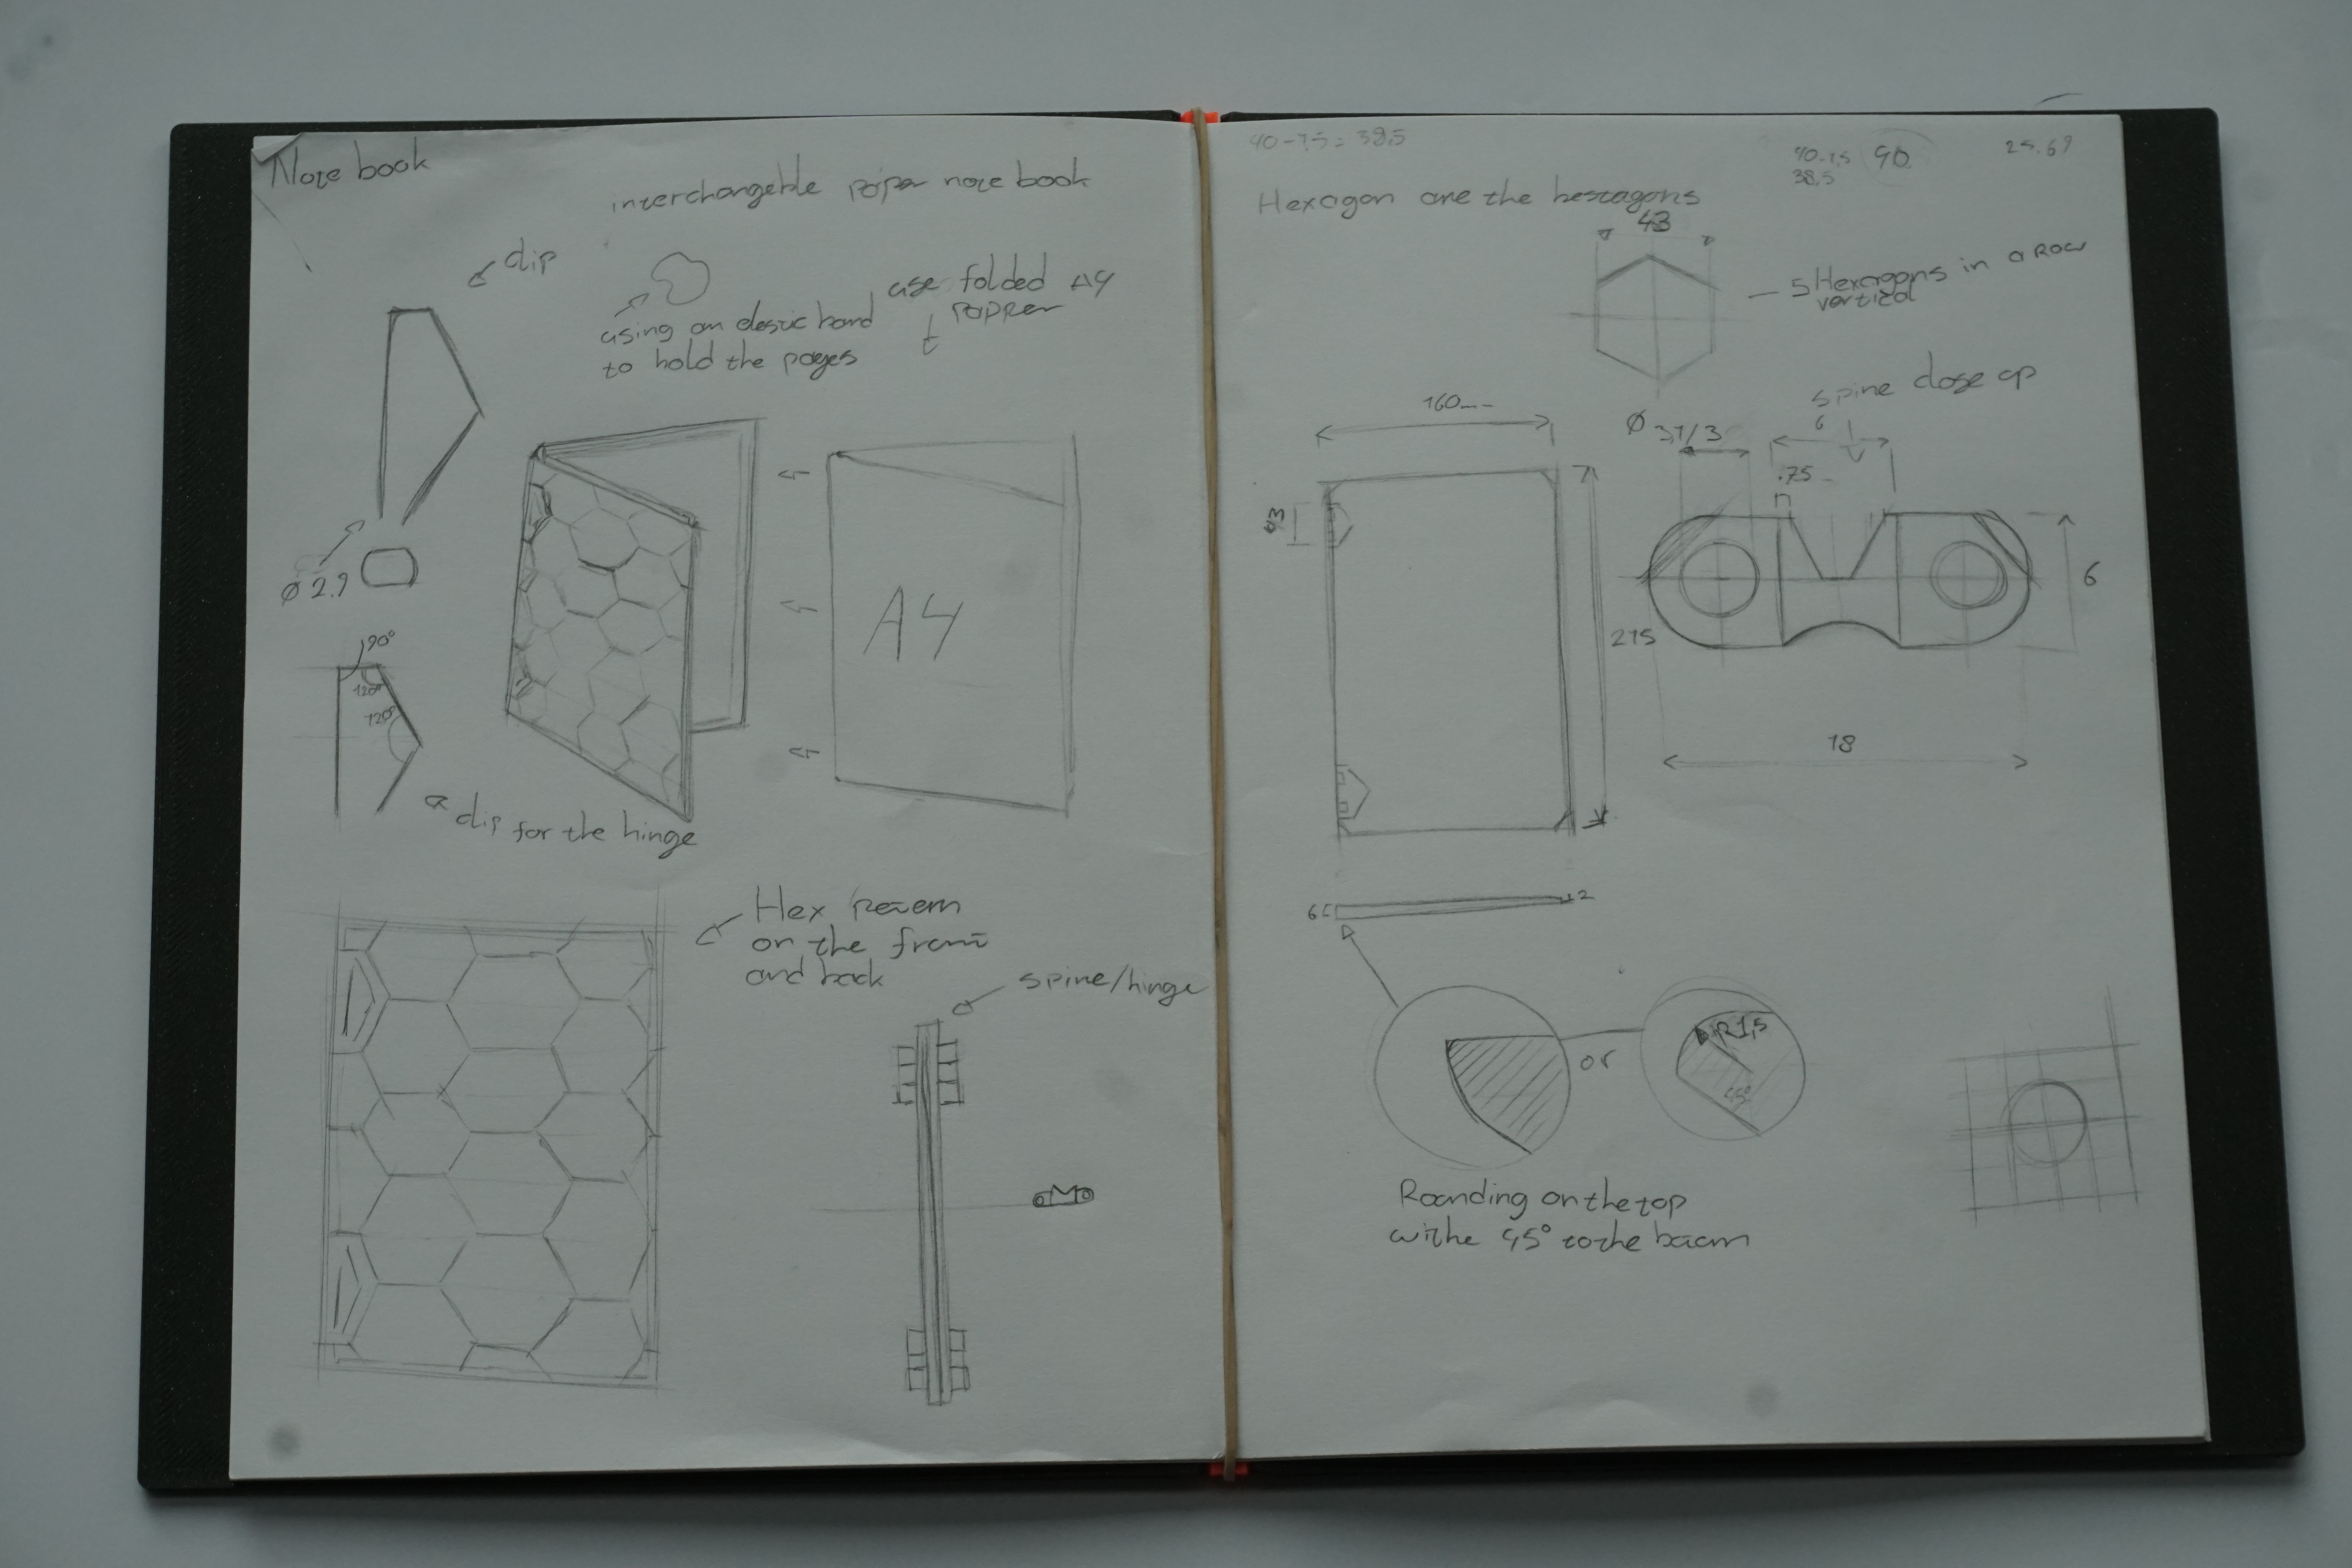 Note book
interchangeable paper note book
clip
using an elastic band
to hold the pages
use folded A4
t
Ø 2.9
90°
120°
120°
A4
clip for the hinge
Hex
on the front
and back
spine/hinge
40-1.5 = 38.5
40-1.5
38.5
90
25.69
Hexagon are the bestagons
43
5 Hexagons in a row
vertical
spine close up
160
Ø 3,1/3
6
.75
43
215
6
18
6
2
or
R1,5
45°
Rounding on the top
withe 45° to the